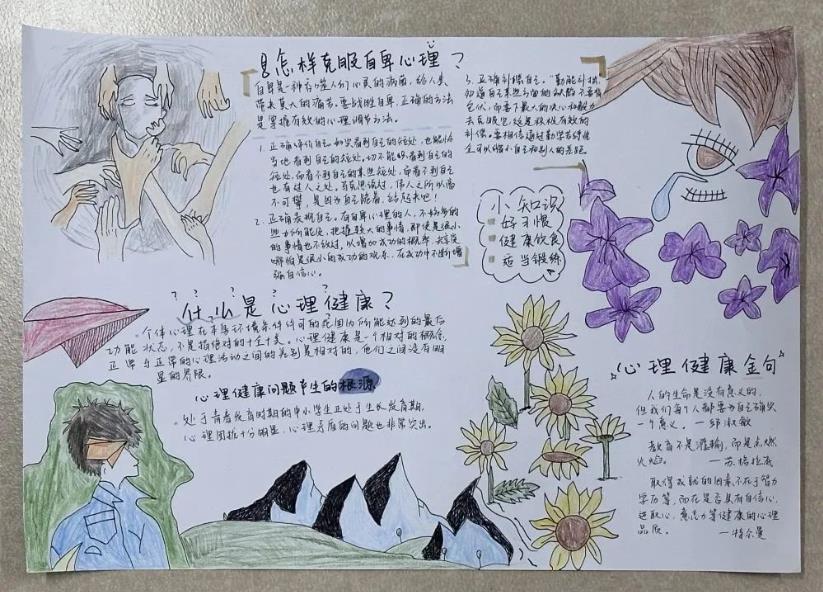 怎样克服自卑心理？
自卑是一种吞噬人们心灵的病菌，给人类
带来莫大的痛苦。要战胜自卑，正确的方法
是掌握有效的心理调节方法。
1. 正确评价自己。如实看到自己的短处，也能恰
当地看到自己的短处，切不能够看到自己的
短处，而看不到自己的某些短处，而看不到自己
也有过人之处，马克思说过，伟人之所以高
不可攀，是因为自己跪着，站起来吧！
2. 正确表现自己。有自卑心理的人，不妨多的
些力所能及，把握较大的事情，即使是很小
的事情也不放过，以增加成功的概率，
哪怕是很小的成功的欢乐，在成功中不断增
强自信心。
3. 正确补偿自己。"勤能补拙，
知道自己某些方面的缺陷，不背
包袱，而要下最大的决心和毅力
去克服它，这是积极有效的
补偿。要相信通过勤学苦练
全可以缩小自己和别人的差距。
小知识
好习惯
健康饮食
适当锻炼
什么是心理健康？
个体心理在本身环境条件许可的范围内所能达到的最后
功能状态，不是指绝对的十全十美。心理健康是一个相对的概念，
正常与正常的心理活动之间的差别是相对的，他们之间没有明
显的界限。
心理健康问题产生的根源
处于青春发育时期的中小学生正处于生长发育期，
心理困扰十分明显，心理矛盾的问题也非常突出。
心理健康金句
人的生命是没有意义的，
但我们每个人都要为自己确立
一个意义。—毕淑敏
教育不是灌输，而是点燃
火焰。
—苏格拉底
取得成就的因素，不在于智力
学历等，而在是否具有自信心，
进取心，意志力等健康的心理
品质。 —特尔曼